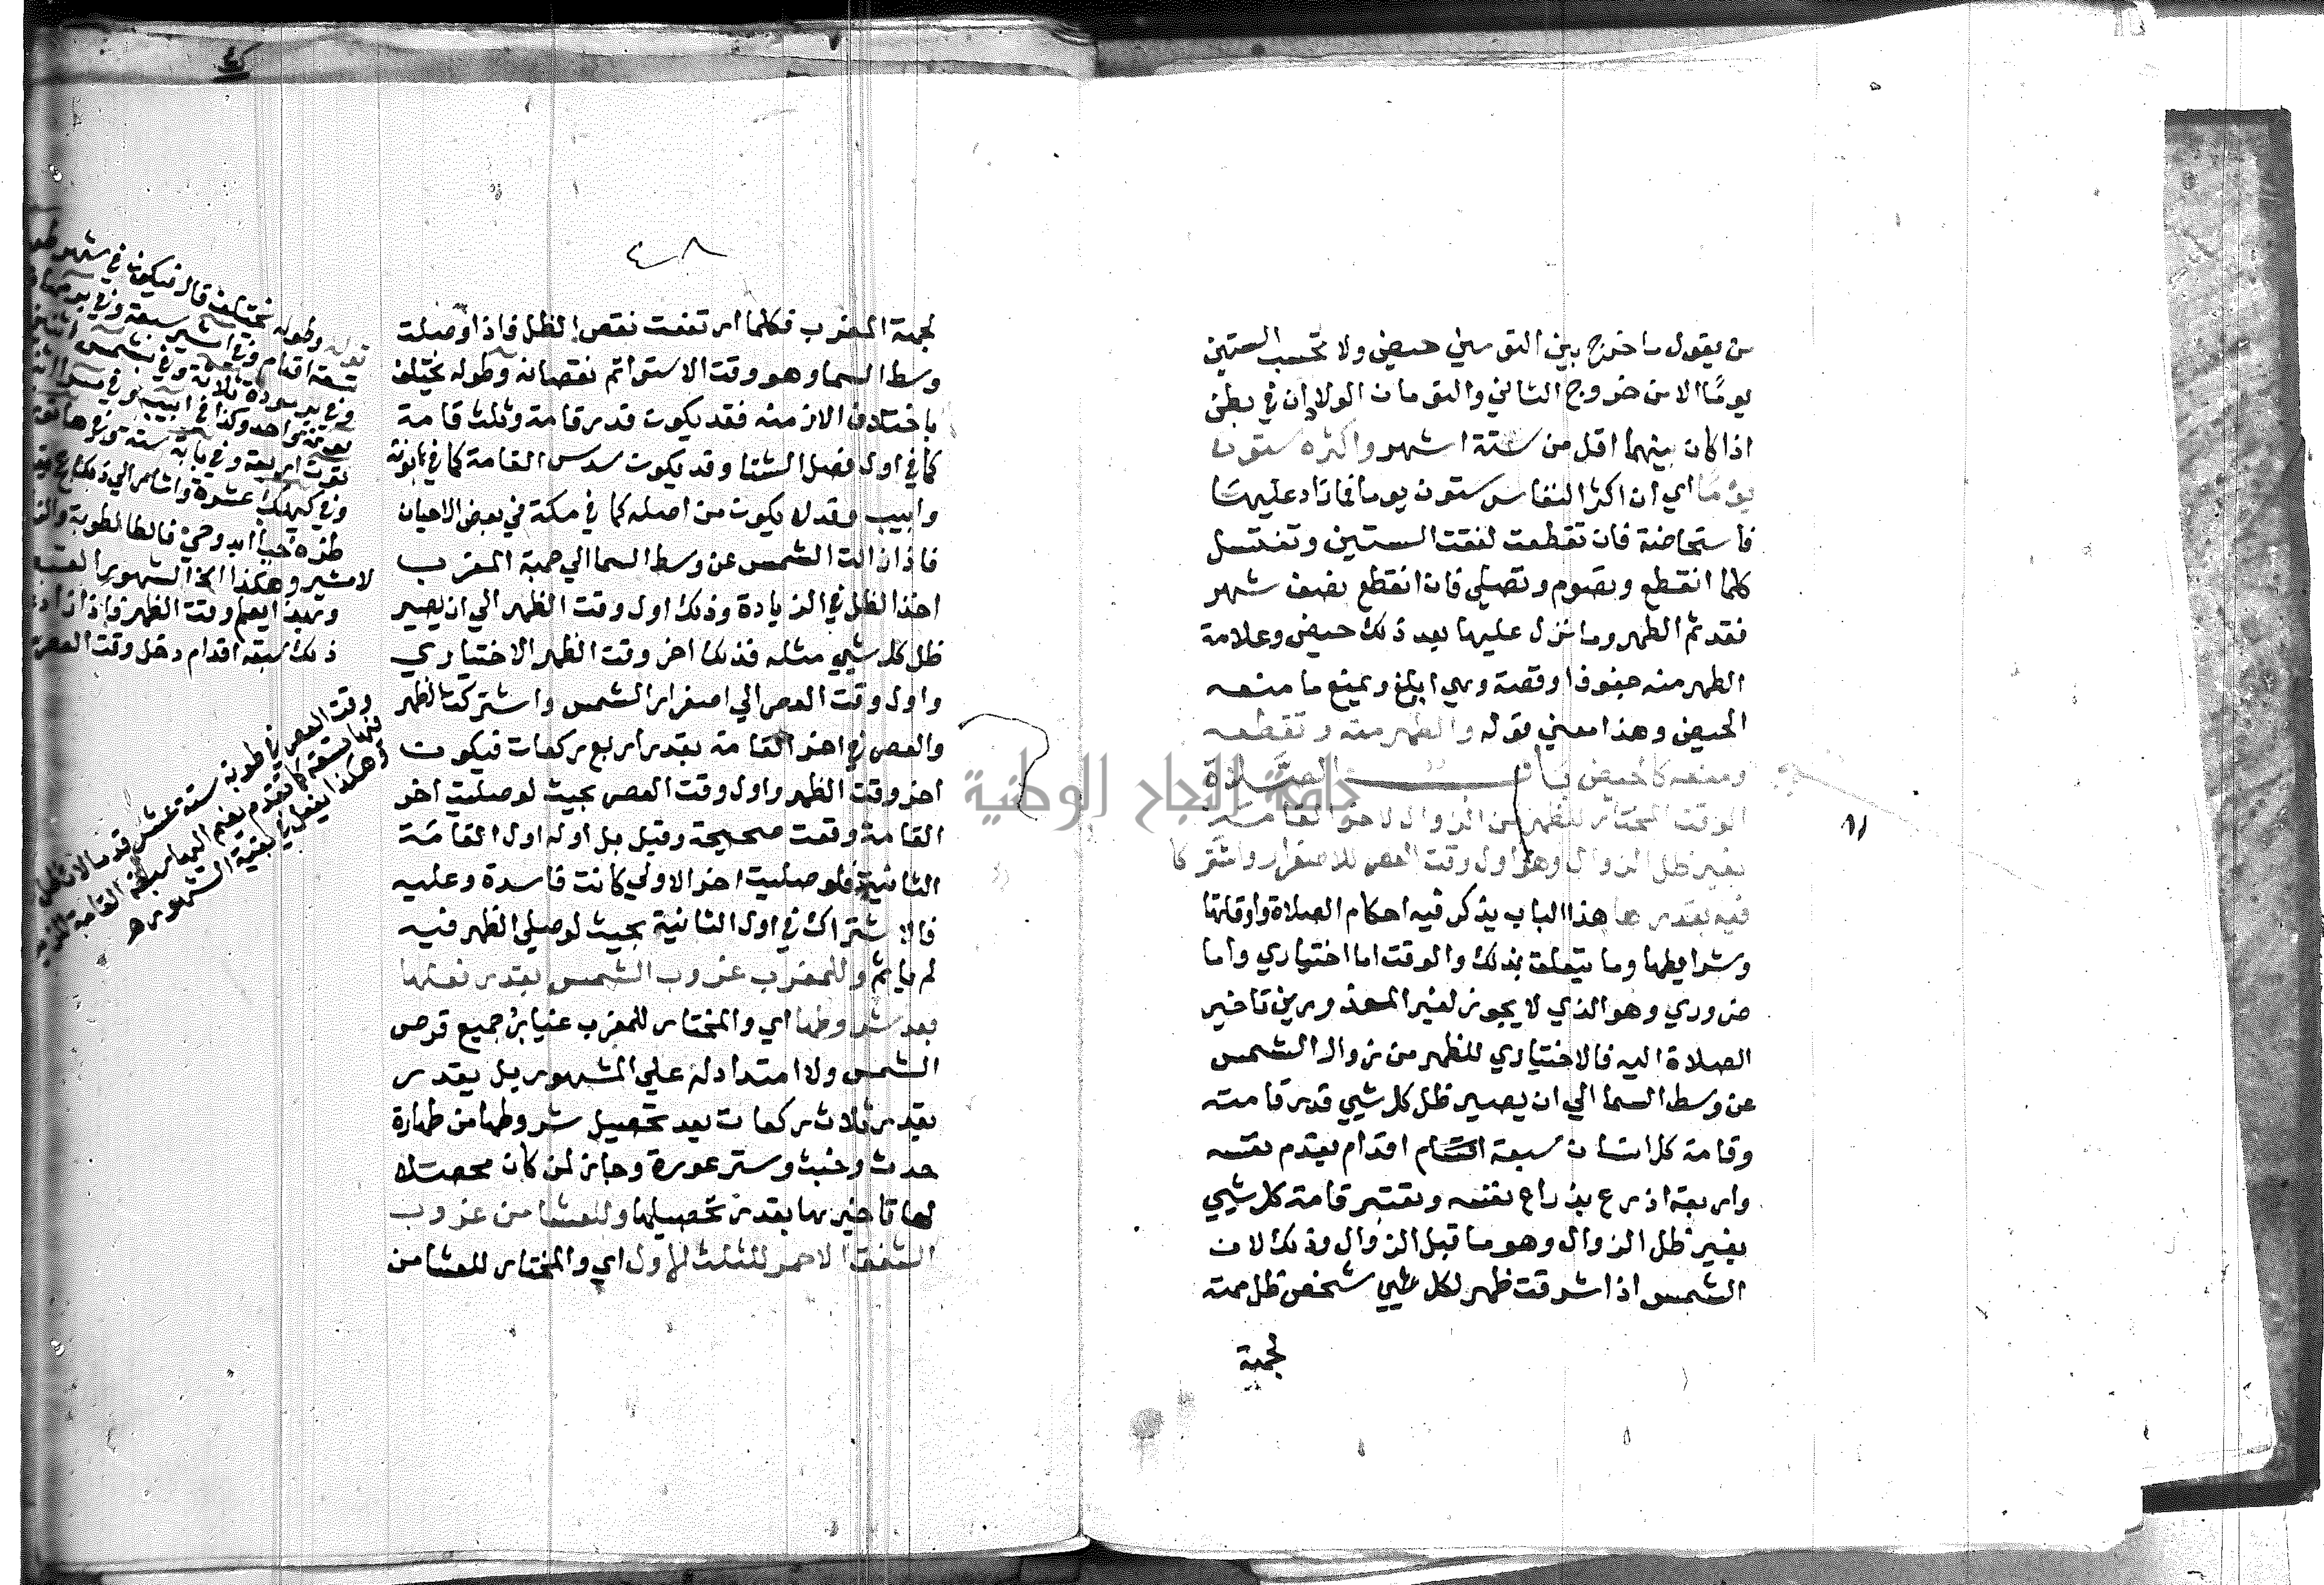 من يقول ما خرج بين التومين حيض ولا تحسب الستين
يومًا الا من خروج الثاني والتومان الولدان في بطن
اذا كان بينهما اقل من ستة اشهر واكثره ستون
يومًا اي ان اكثر النفاس ستون يوما فما زاد عليها
فاستحاضة فان تقطعت لفقت الستين وتغتسل
كلما انقطع وتصوم وتصلي فان انقطع نصف شهر
فقد تم الطهر وما نزل عليها بعد ذلك حيض وعلامة
الطهر منه جفوف او قصة وهي ابلغ ويمنع ما منعه
الحيض وهذا معني قوله والطهر منه وتقطعه
ومنعه كالحيض باب الصلاة
الوقت المختار للظهر من الزوال لاخر القامة
بغير ظل الزوال وهو اول وقت العصر للاصفرار واشتركا
فيه بقدرها هذا الباب يذكر فيه احكام الصلاة واوقاتها
وشرايطها وما يتعلق بذلك والوقت اما اختياري واما
ضروري وهو الذي لا يجوز لغير المعذورين تاخير
الصلاة اليه فالاختياري للظهر من زوال الشمس
عن وسط السما الي ان يصير ظل كل شيي قدر قامته
وقامة كل انسان سبعة اقدام بقدم نفسه
واربعة اذرع بذراع نفسه وتعتبر قامة كل شيي
بغير ظل الزوال وهو ما قبل الزوال وذلك لان
الشمس اذا اشرقت ظهر لكل شيي شخص ظل ممته
لجهة
١٨
٤٨
لجهة المغرب فكلما ارتفعت نقص الظل فاذا وصلت
وسط السما وهو وقت الاستوا تم نقصانه وطوله يختلف
باختلاف الازمنه فقد يكون قدر قامة وثلث قامة
كما في اول فصل الشتا وقد يكون سدس القامة كما في بابونة
وابيب وقد لا يكون من اصله كما في مكة في بعض الاحيان
فاذا زالت الشمس عن وسط السما الي جهة المغرب
اخذ الظل في الزيادة وذلك اول وقت الظهر الي ان يصير
ظل كل شيي مثله فذلك اخر وقت الظهر الاختياري
واول وقت العصر الي اصفرار الشمس واشتركت الظهر
والعصر في اخر القامة بقدر اربع ركعات فيكون
اخر وقت الظهر واول وقت العصر بحيث لو صليت اخر
القامة وقعت صحيحة وقيل بل اوله اول القامة
الثانية فلو صليت اخر الاولي كانت فاسدة وعليه
فالاشتراك في اول الثانية بحيث لو صلي الظهر فيه
لم ياثم وللمغرب غروب الشمس يقدر بفعلها
بعد شروطها اي والمختار للمغرب غياب جميع قرص
الشمس ولا امتداد له علي المشهور بل يقدر
بقدر ثلاث ركعات بعد تحصيل شروطها من طهارة
حدث وخبث وستر عورة وجاز لمن كان محصلا
لها تاخيرها بقدر تحصيلها وللعشا من غروب
الشفق الاحمر للثلث الاول اي والمختار للعشا من
قوله وطوله يختلف قال فيكون في شهر
تسعة اقدام وفي امشير سبعة وفي
لامشير وهكذا الي الشهور
وبهذا يعلم وقت الظهر فاذا زاد
ذلك سبعة اقدام دخل وقت العصر
وقت العصر في طوبة ستة عشر قدما
وهكذا يفعل في بقية الشهور
جامعة النجاح الوطنية